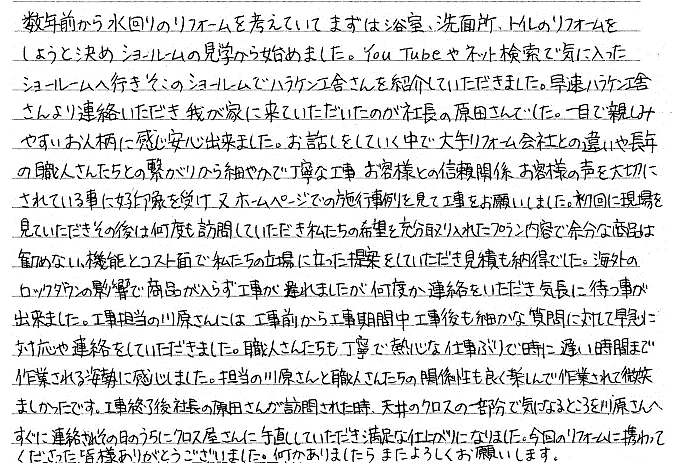 数年前から水回りのリフォームを考えていてまずは浴室、洗面所、トイレのリフォームを
しようと決めショールームの見学から始めました。YouTubeやネット検索で気に入った
ショールームへ行きそこのショールームでハラケン工舎さんを紹介していただきました。早速ハラケン工舎
さんより連絡いただき我が家に来ていただいたのが社長の原田さんでした。一目で親しみ
やすいお人柄に感じ安心出来ました。お話しをしていく中で大手リフォーム会社との違いや長年
の職人さんたちとの繋がりから細やかで丁寧な工事 お客様との信頼関係 お客様の声を大切に
されている事に好印象を受け又ホームページでの施行事例を見て工事をお願いしました。初回に現場を
見ていただきその後は何度も訪問していただき私たちの希望を充分取り入れたプラン内容で余分な商品は
勧めない、機能とコスト面で私たちの立場に立った提案をしていただき見積も納得でした。海外の
ロックダウンの影響で商品が入らず工事が遅れましたが何度か連絡をいただき気長に待つ事が
出来ました。工事担当の川原さんには工事前から工事期間中工事後も細かな質問に対して早急に
対応や連絡をしていただきました。職人さんたちも丁寧で熱心な仕事ぶりで時に遅い時間まで
作業される姿勢に感じしました。担当の川原さんと職人さんたちの関係性も良く楽しんで作業されて微笑
ましかったです。工事終了後社長の原田さんが訪問された時、天井のクロスの一部分で気になるところを川原さんへ
すぐに連絡されその日のうちにクロス屋さんに手直していただき満足な仕上がりになりました。今回のリフォームに携わって
くださった皆様ありがとうございました。何かありましたらまたよろしくお願いします。